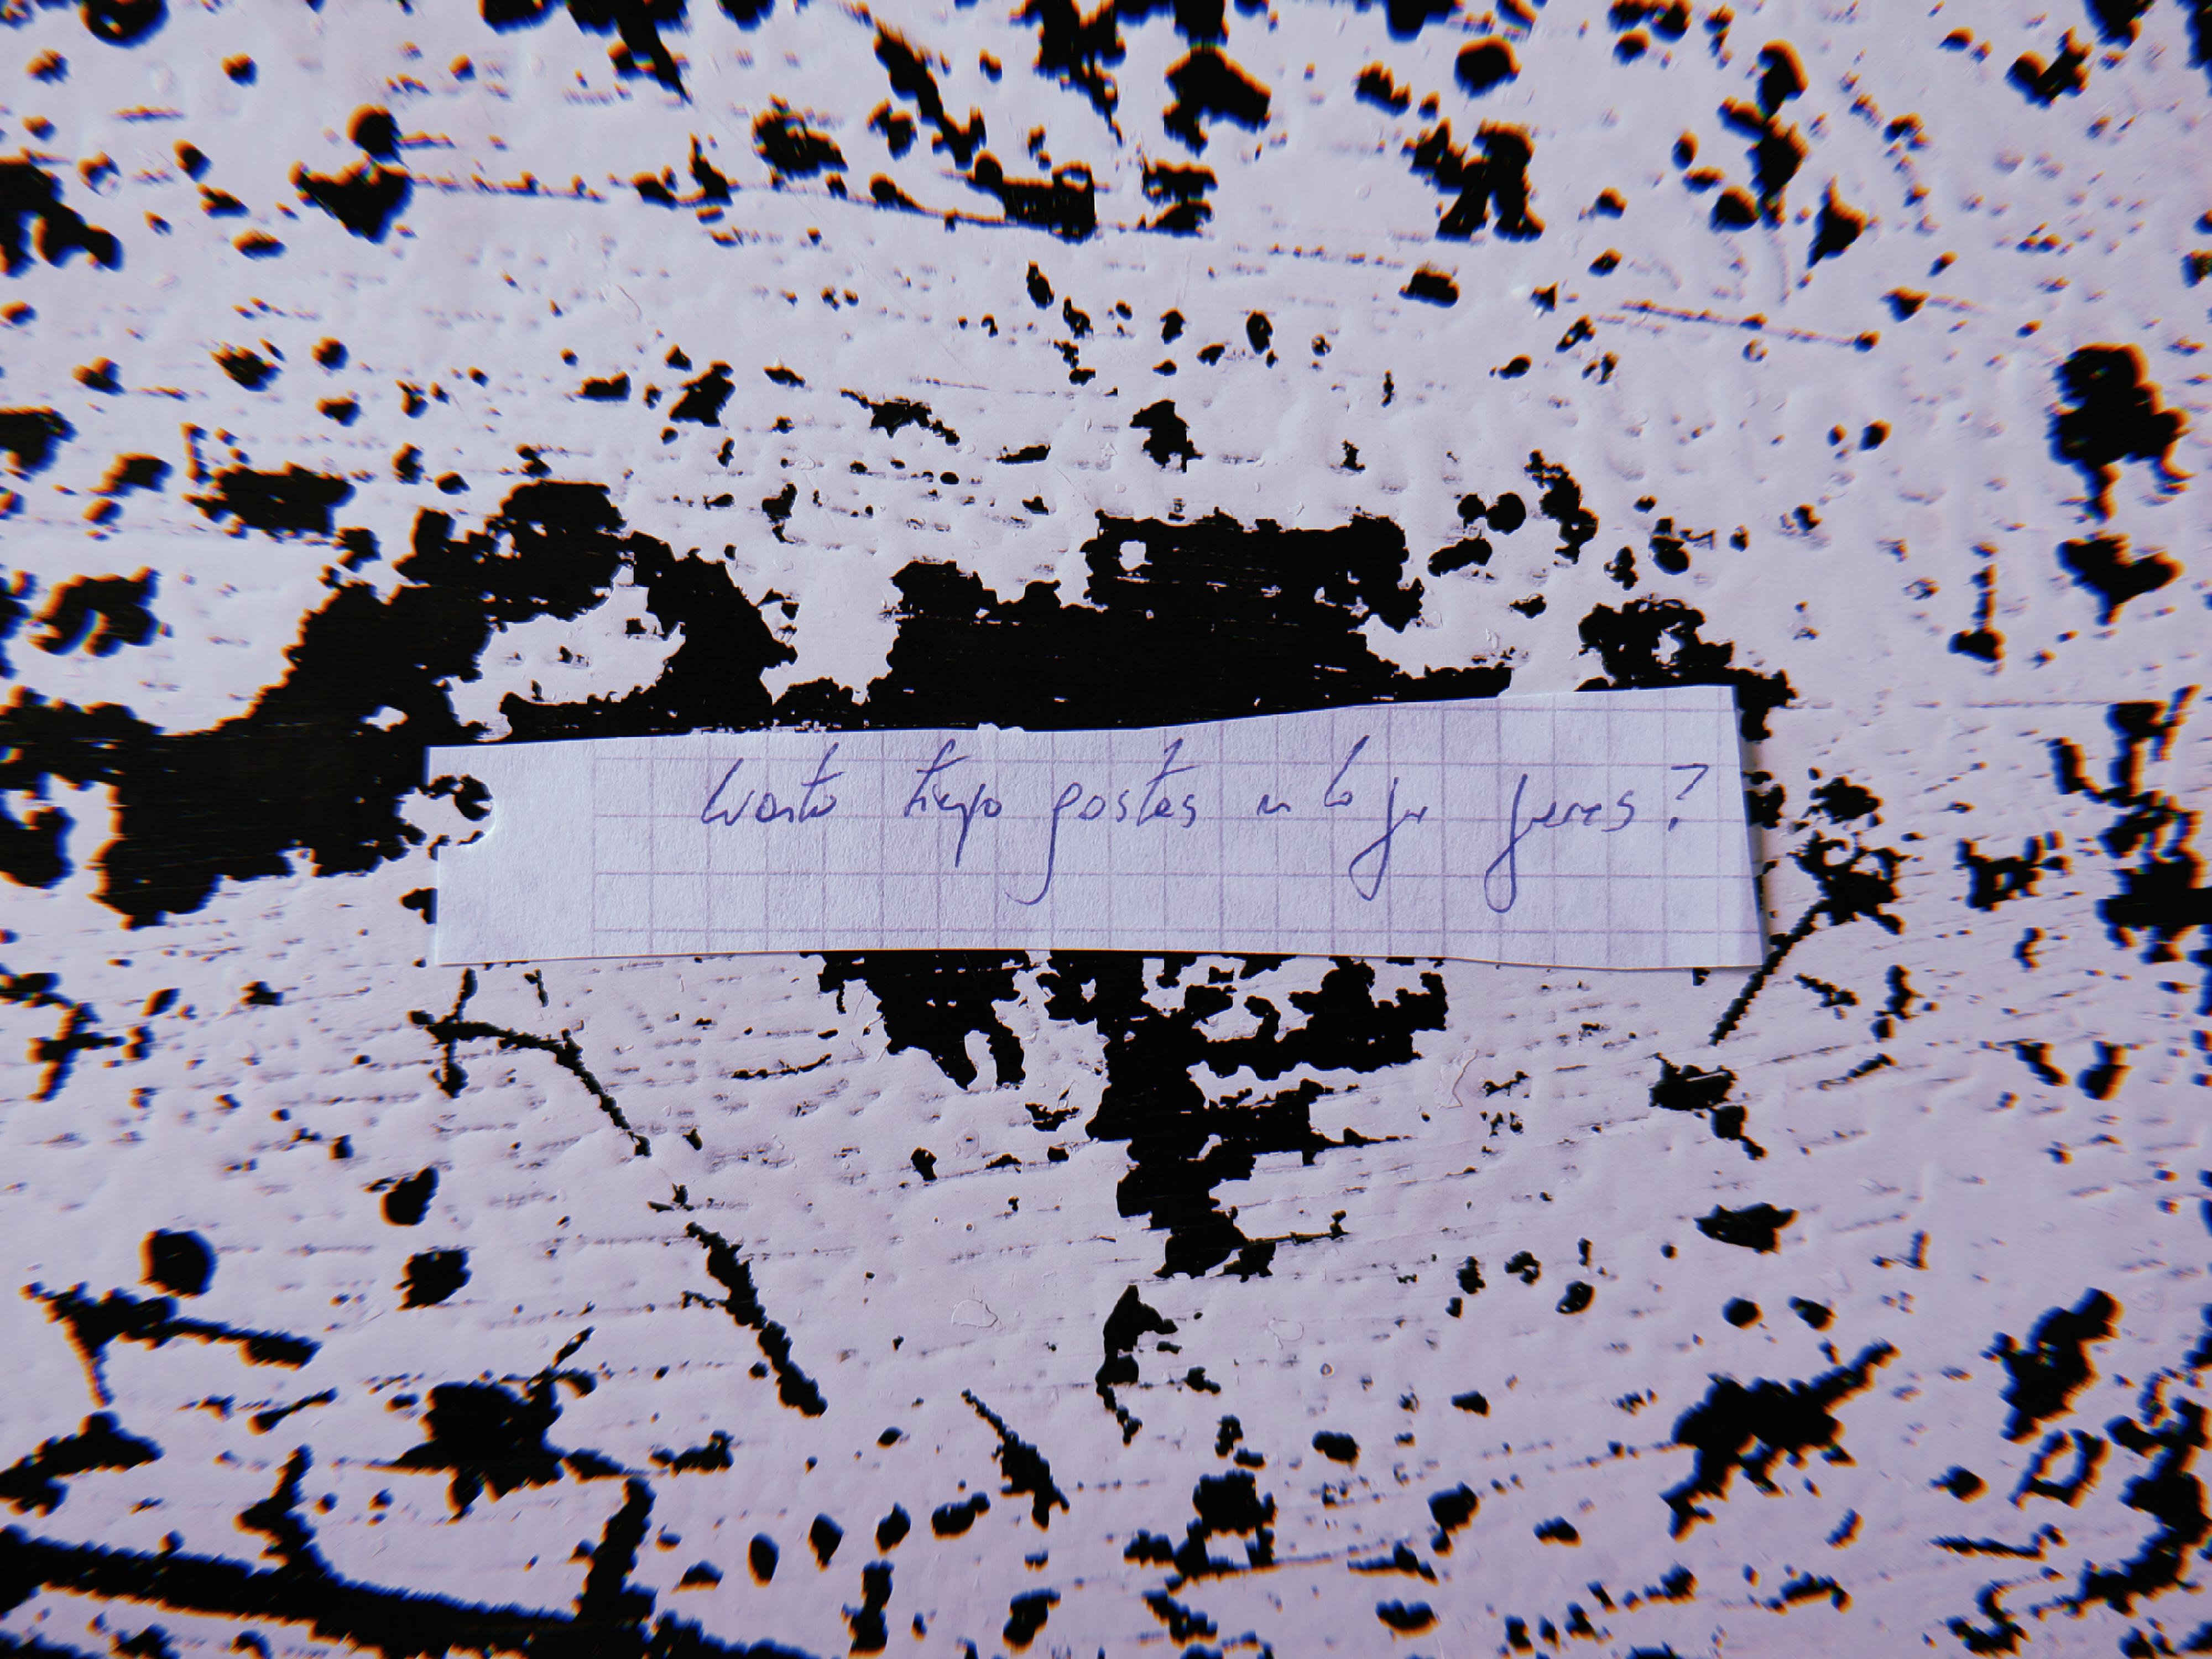 Cuanto tiempo gastas en lo que quieres?